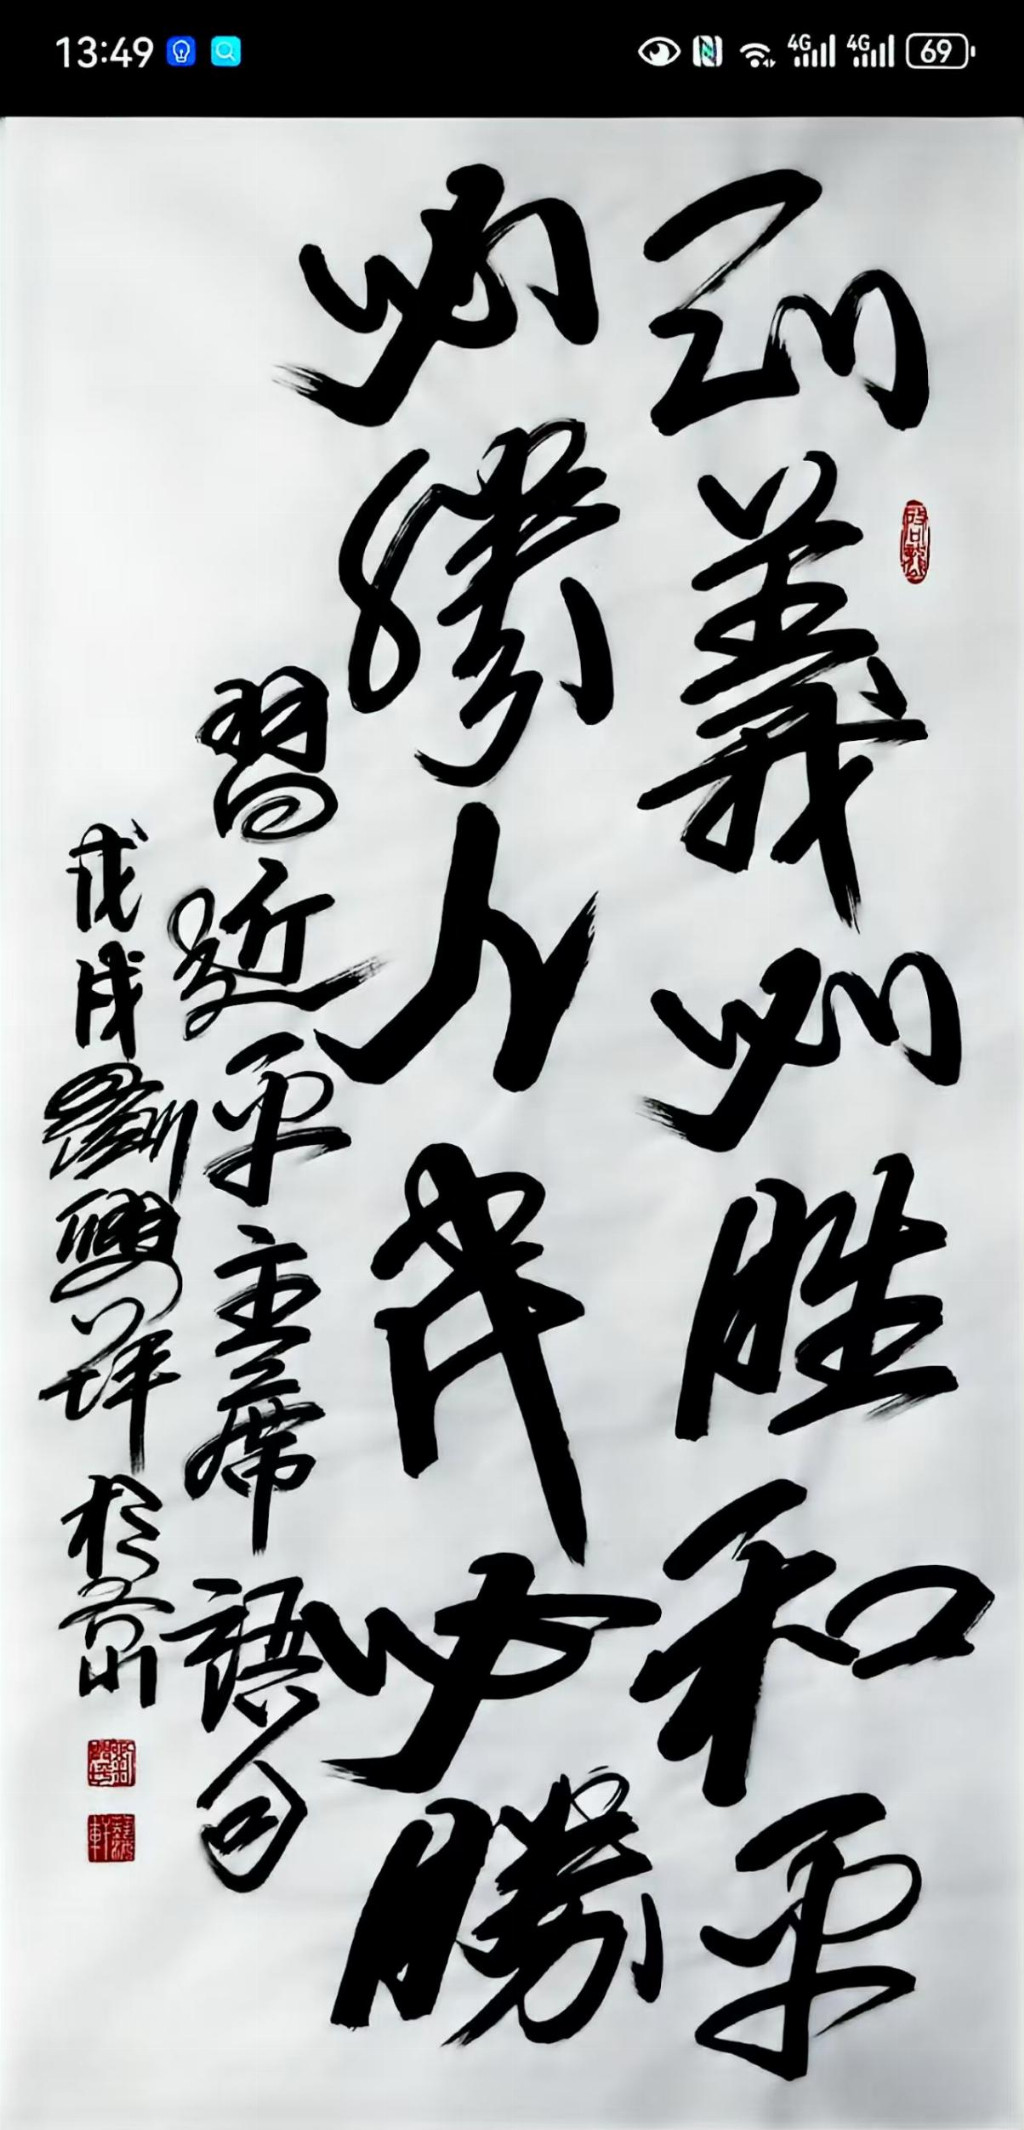 13:49
4G 4G 69
正義必胜和平
必勝人民必勝
習近平主席語句
戊戌劉興祥於京